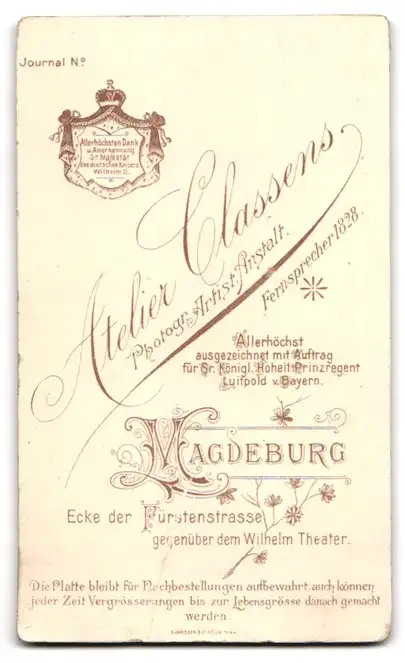 Journal Nº
Allerhöchsten Dank
u. Anerkennung
Sr Majestät
des deutschen Kaisers
Wilhelm II.
Atelier Classens
Photogr. Artist. Anstalt.
Fernsprecher 1828.
Allerhöchst
ausgezeichnet mit Auftrag
für Sr. Königl. Hoheit Prinzregent
Luitpold v. Bayern.
MAGDEBURG
Ecke der Fürstenstrasse
gegenüber dem Wilhelm Theater.
Die Platte bleibt für Nachbestellungen aufbewahrt, auch können
jeder Zeit Vergrösserungen bis zur Lebensgrösse danach gemacht
werden.